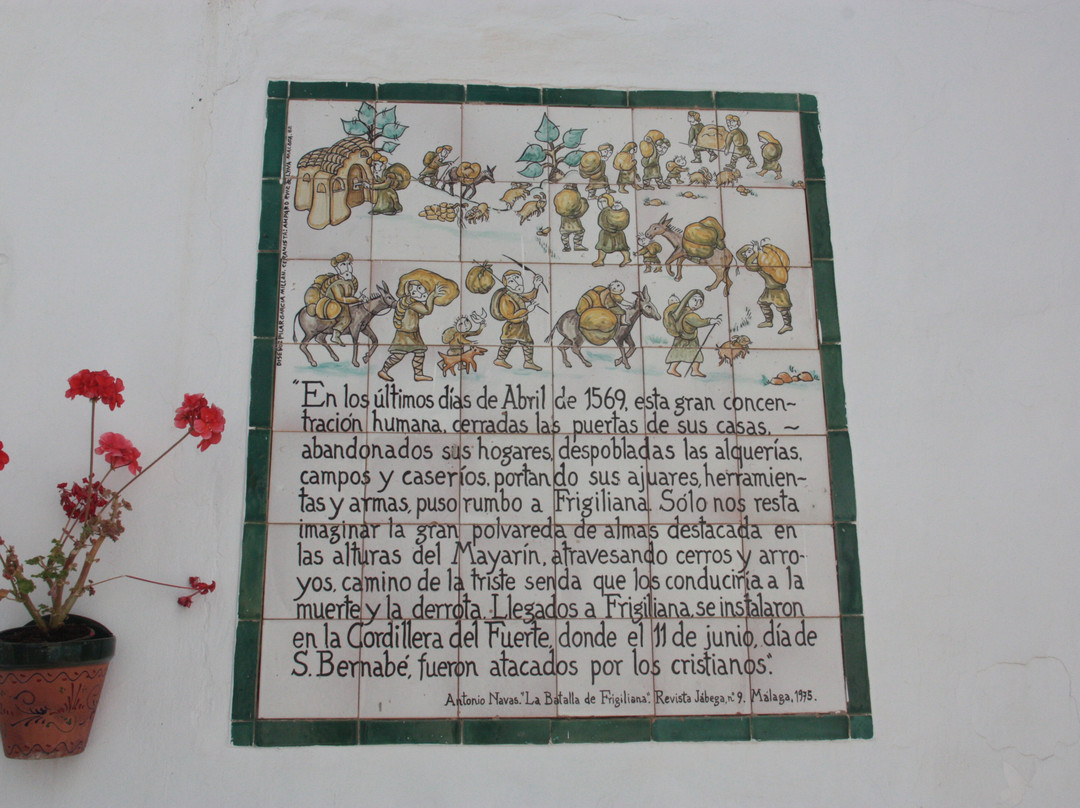 "En los últimos días de Abril de 1569, esta gran concen~
tración humana, cerradas las puertas de sus casas, ~
abandonados sus hogares, despobladas las alquerías,
campos y caseríos, portando sus ajuares, herramien-
tas y armas, puso rumbo a Frigiliana. Sólo nos resta
imaginar la gran polvareda de almas destacada en
las alturas del Mayarín, atravesando cerros y arro-
yos, camino de la triste senda que los conduciría a la
muerte y la derrota. Llegados a Frigiliana, se instalaron
en la Cordillera del Fuerte, donde el 11 de junio, día de
S. Bernabé, fueron atacados por los cristianos".
Antonio Navas. "La Batalla de Frigiliana". Revista Jábega, nº 9. Málaga, 1975.